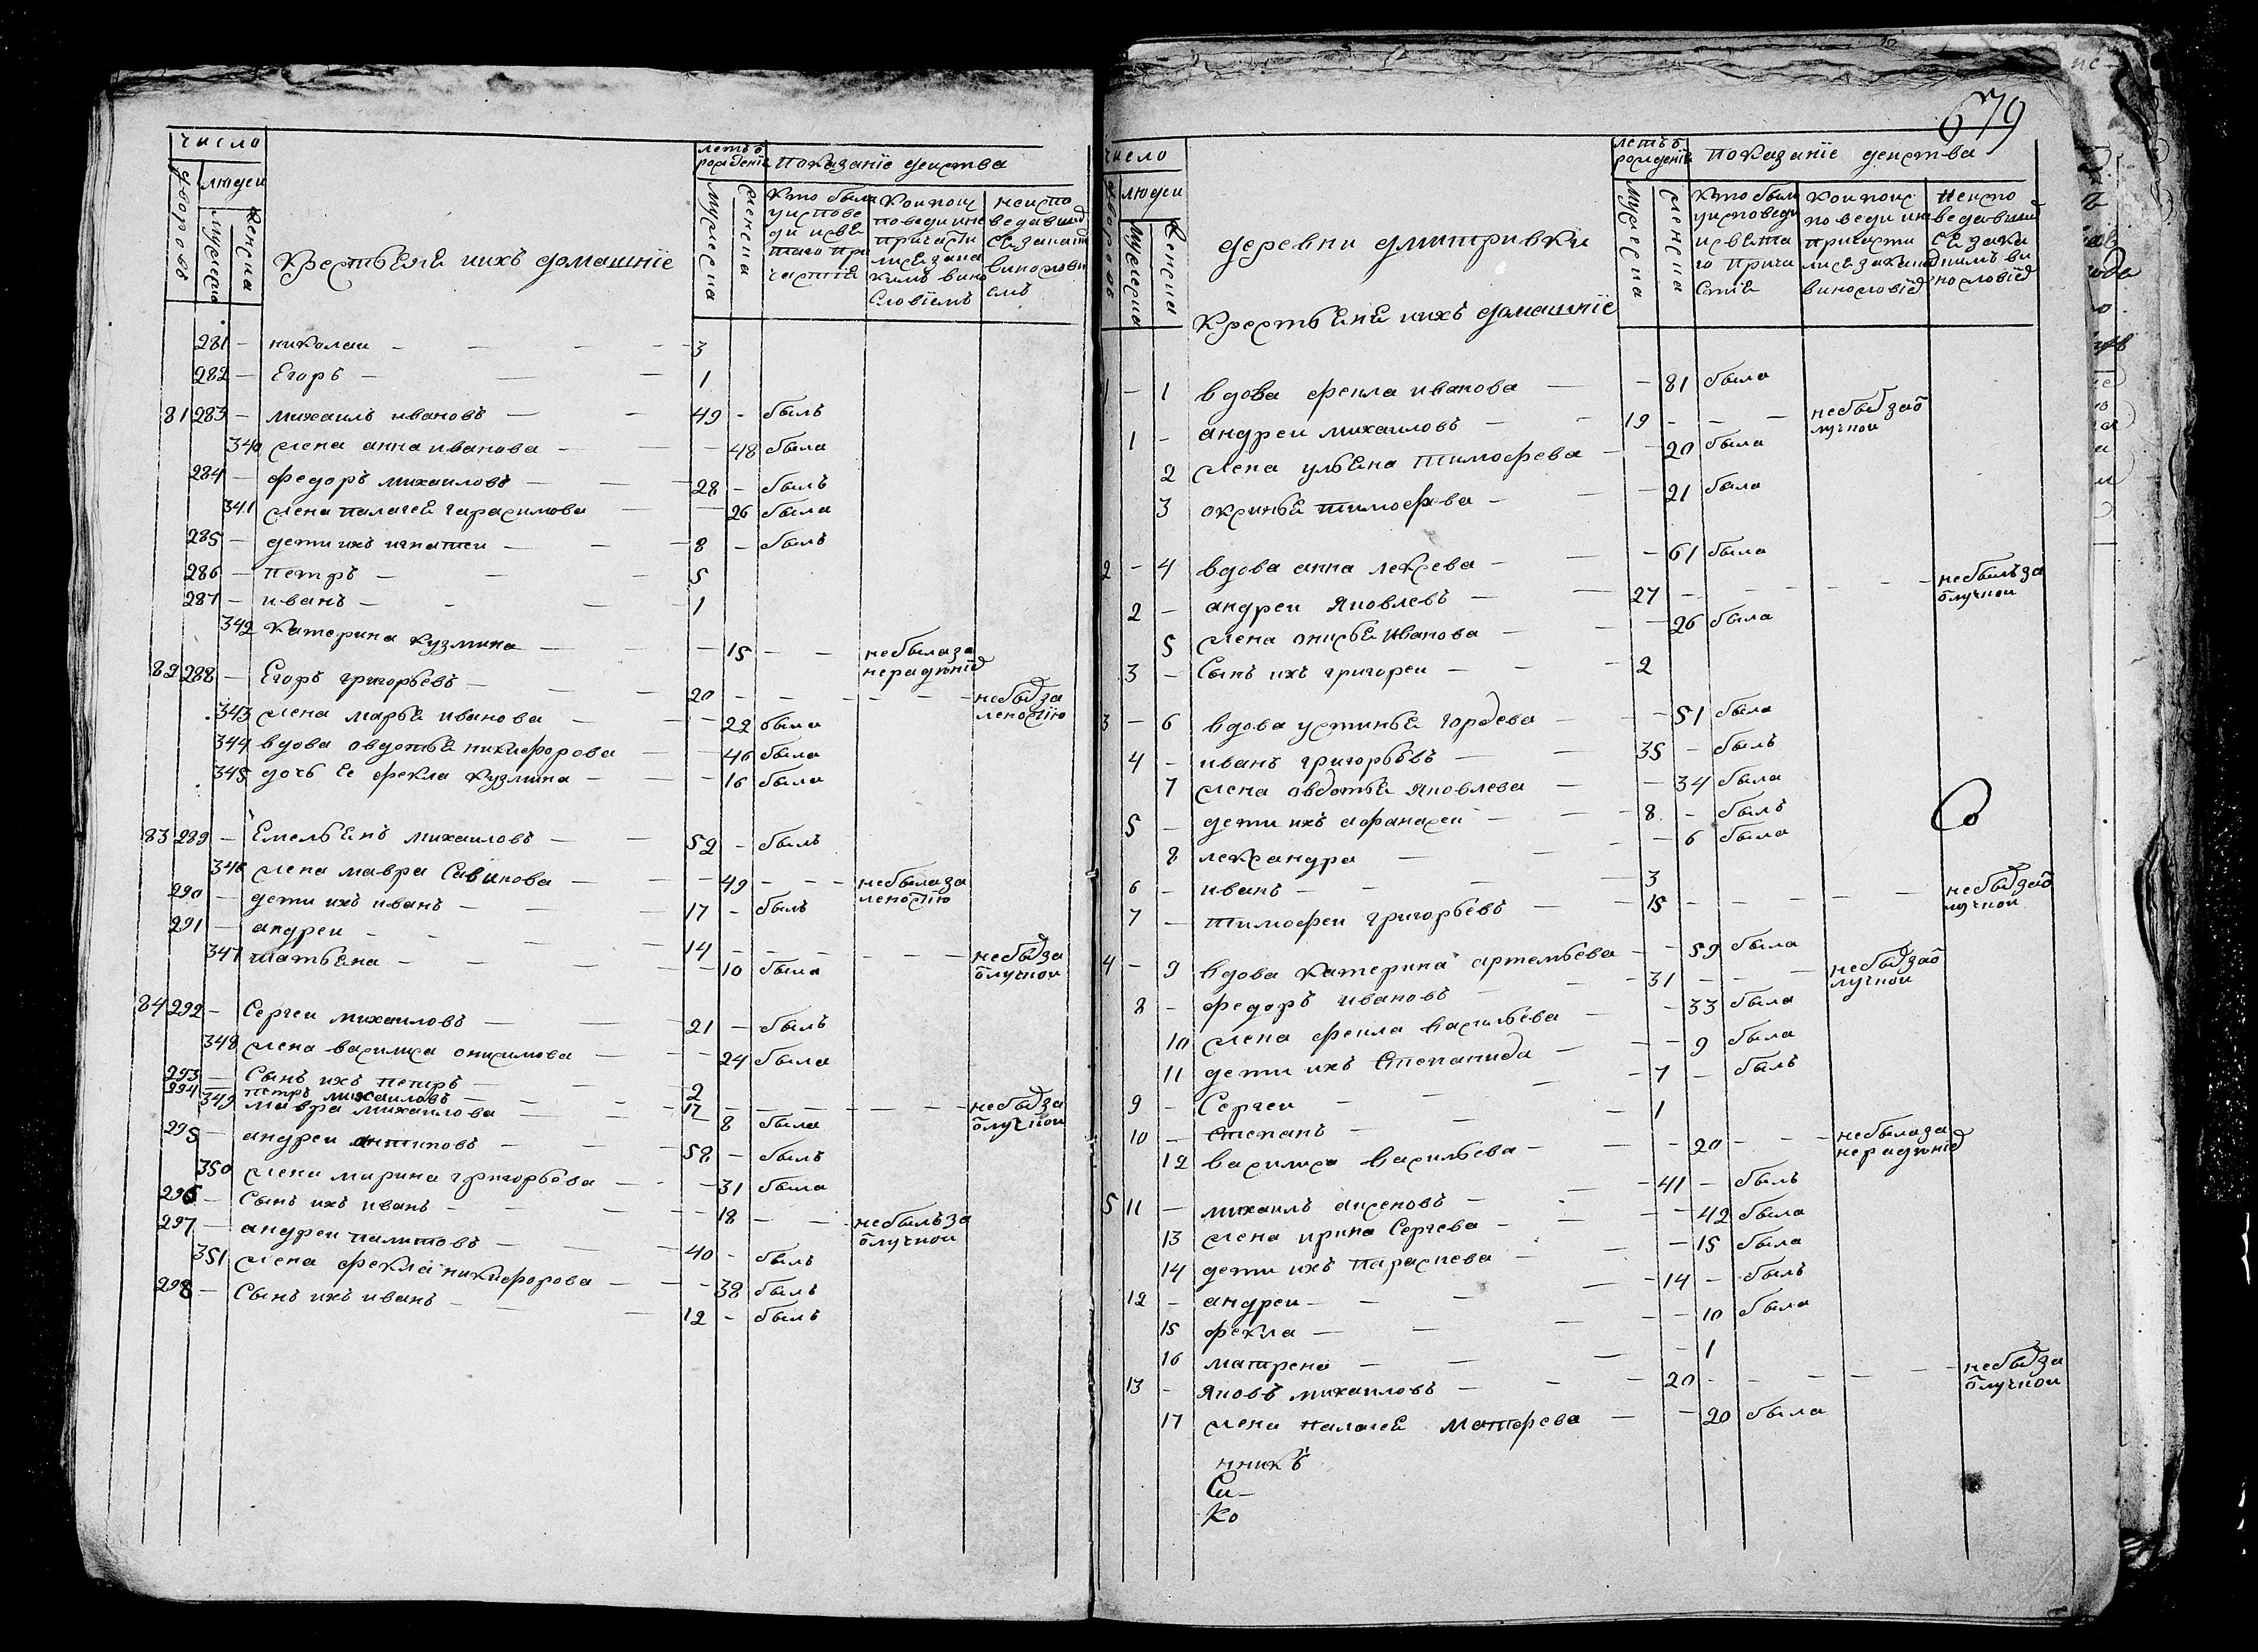 число
летъ ѿ рождениѣ
показанїе действа
дворовъ
людеи
мужеска
женска
крестьянѣ иихъ домашнїе
мужеска
женска
кто былъ уисповеди исвѣтаго причастиѣ
кои поисповеди ине причастилисѣ закакимъ винословїемъ
неисповедавшиесѣ
281 – николаи – 3
282 – Егоръ – 1
81 283 – михаилъ ивановъ – 49 – былъ
340 жена анна иванова – 48 была
284 – федоръ михаиловъ – 28 – былъ
341 жена палагеѣ гарасимова – 26 была
285 – дети ихъ игнатеи – 8 – былъ
286 – петръ – 5
287 – иванъ – 1
342 катерина кузмина – 15 – – небыла за
нерадѣнїе
82 288 – Егоръ григорьевъ – 20 – – – небыл за
леностїю
343 жена марьѣ иванова – 22 была
344 вдова овдотьѣ никифорова – 46 была
345 дочь ее фекла кузмина – 16 была
83 289 – Емельѣнъ михаиловъ – 52 – былъ
346 жена мавра Савинова – 49 – – небыла за
леностїю
290 – дети ихъ иванъ – 17 – былъ
291 – андреи – 14 – – – небыл за
ѿлучкои
347 татьѣна – 10 была
84 292 – Сергеи михаиловъ – 21 – былъ
348 жена василиса онисимова – 24 была
293 – Сынъ ихъ петръ – 2
294 – петръ михаиловъ – 17 – – – небыл за
ѿлучкои
349 мавра михаилова – 8 была
295 – андреи антиповъ – 58 – былъ
350 жена марина григорьева – 31 была
296 – Сынъ ихъ иванъ – 18 – – небылъ за
ѿлучкои
297 – андреи палитовъ – 40 – былъ
351 жена фекла никифорова – 38 былъ
298 – Сынъ ихъ иванъ – 12 – былъ
679
число
летъ ѿ рождениѣ
показанїе действа
дворовъ
людеи
мужеска
женска
деревни дмитривки
крестьѣнѣ иихъ домашнїе
мужеска
женска
кто былъ уисповеди исвѣтаго причастиѣ
1 – 1 вдова фекла иванова – 81 была
1 – андреи михаиловъ – 19 – – – небыл заѿ
лучкои
2 жена ульѣна тимофева – 20 была
3 оксиньѣ тимофева – 21 была
2 – 4 вдова анна лексева – 61 была
2 – андреи яковлевъ – 27 – – – небылъ за
ѿлучкои
5 жена онисьѣ иванова – 26 была
3 – Сынъ ихъ григореи – 2
3 – 6 вдова устиньѣ гордева – 51 была
4 – иванъ григорьевъ – 35 – былъ
7 жена овдотьѣ яковлева – 34 была
5 – дети ихъ афанасеи – 8 – былъ
8 лександра – 6 была
6 – иванъ – 3
7 – тимофеи григорьевъ – 15 – – – небыл заѿ
лучкои
4 – 9 вдова катерина артемьева – 59 была
8 – федоръ ивановъ – 31 – – небыл заѿ
лучкои
10 жена фекла васильева – 33 была
11 дети ихъ Степанида – 9 была
9 – Сергеи – 7 – былъ
10 – степанъ – 1
12 василиса васильева – 20 – – небыла за
нерадѣнїе
5 11 – михаилъ аксеновъ – 41 – былъ
13 жена ирина Сергева – 42 была
14 дети ихъ параскева – 15 была
12 – андреи – 14 – былъ
15 фекла – 10 была
16 матрена – 1
13 – яковъ михаиловъ – 20 – – – небыл за
ѿлучкои
17 жена палагеѣ матфева – 20 была
нникъ
Си–
Ко